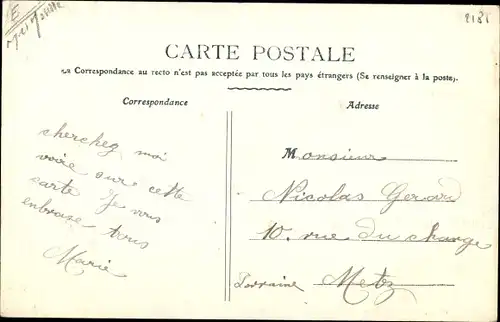 2181
CARTE POSTALE
La Correspondance au recto n'est pas acceptée par tous les pays étrangers (Se renseigner à la poste).
Correspondance
Adresse
cherchez moi
voire sur cette
carte Je vous
enbrasse tous
Marie
Monsieur
Nicolas Gerard
10. rue du change
Lorraine Metz